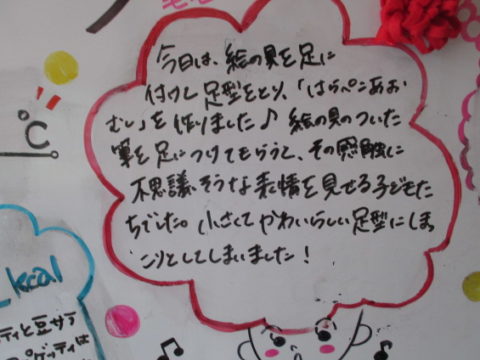 今日は、絵の具を足に
付けて足型をとり、「はらぺこあお
むし」を作りました♪ 絵の具のついた
筆を足につけてもらうと、その感触に
不思議そうな表情を見せる子どもた
ちでした。小さくてかわいらしい足型にほっ
こりとしてしまいました!
℃
kcal
ティと豆サラ
パゲッティは